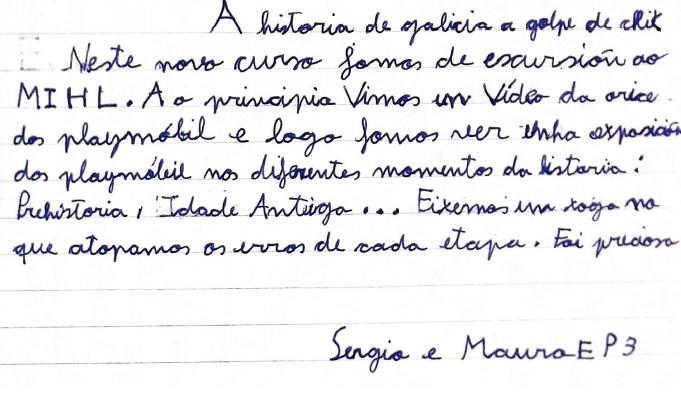 A historia de galicia a golpe de clik
Neste novo curso fomos de escursión ao
MIHL. A o principio Vimos un Vídeo da orixe
dos playmóbil e logo fomos ver unha exposición
dos playmóbil nos diferentes momentos da historia:
Prehistoria, Idade Antiga... Eixemos un xogo no
que atopamos os erros de cada etapa. Foi precioso
Sergio e Mauro EP3